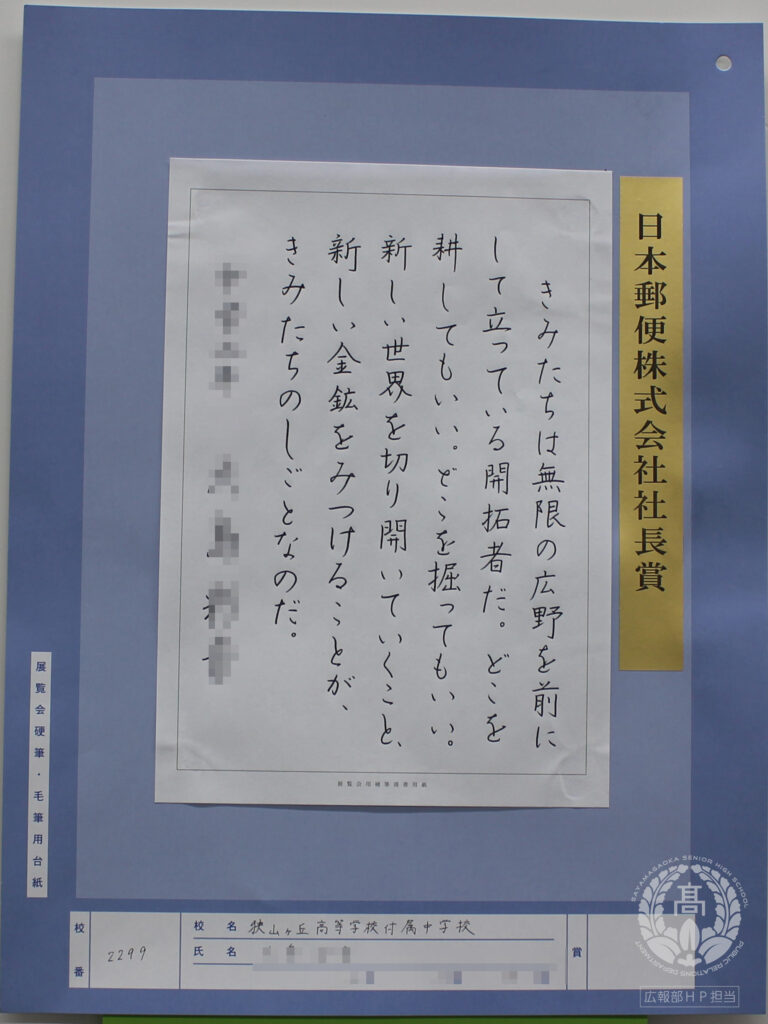 日本郵便株式会社社長賞
きみたちは無限の広野を前に
して立っている開拓者だ。どこを
耕してもいい。どこを掘ってもいい。
新しい世界を切り開いていくこと、
新しい金鉱をみつけることが、
きみたちのしごとなのだ。
展覧会硬筆・毛筆用台紙
校番
2299
校名 狭山ヶ丘高等学校付属中学校
氏名
賞
SAYAMAGAOKA SENIOR HIGH SCHOOL
髙
PUBLIC RELATIONS DEPARTMENT
広報部HP担当